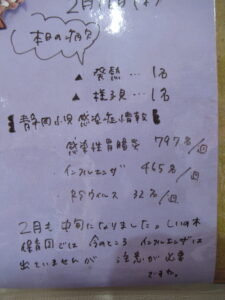 本日の病欠
▲ 発熱…1名
▲ 様子見…1名
静岡小児感染症情報
感染性胃腸炎 797名/週
インフルエンザ 465名/週
RSウィルス 32名/週
2月も中旬になりました。しいの木
保育園では今のところ インフルエンザは
出ていませんが 注意が必要
ですね。